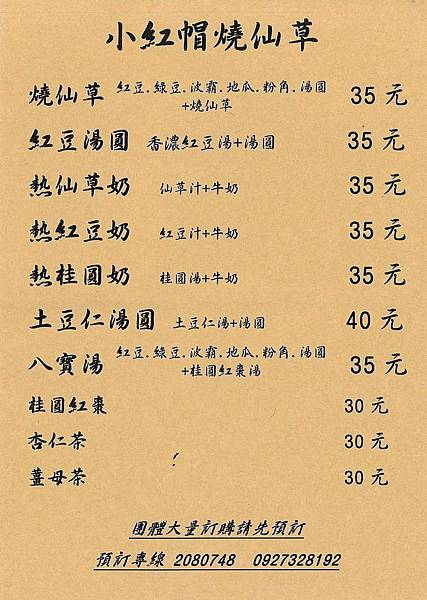 小紅帽燒仙草
燒仙草 紅豆.綠豆.波霸.地瓜.粉角.湯圓 35 元
+燒仙草
紅豆湯圓 香濃紅豆湯+湯圓 35 元
熱仙草奶 仙草汁+牛奶 35 元
熱紅豆奶 紅豆汁+牛奶 35 元
熱桂圓奶 桂圓湯+牛奶 35 元
土豆仁湯圓 土豆仁湯+湯圓 40 元
八寶湯 紅豆.綠豆.波霸.地瓜.粉角.湯圓 35 元
+桂圓紅棗湯
桂圓紅棗 30 元
杏仁茶 30 元
薑母茶 30 元
團體大量訂購請先預訂
預訂專線 2080748 0927328192